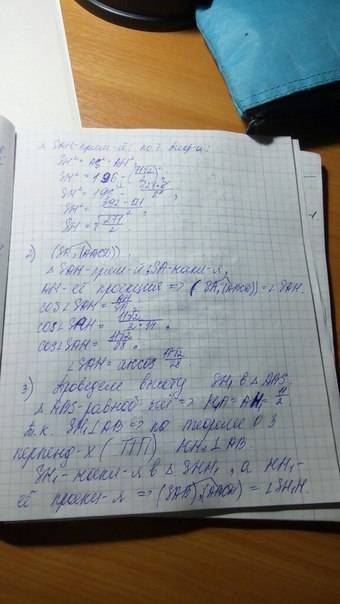 Δ SAH-прям-й: по т. Пифаг:
SH² = AS² - AH²
SH² = 196 - (11√2/2)²
SH² = 196 - 121·2/4;
SH² = 392-121/2;
SH = √271/2;
2) (SA, (ABCD))
Δ SAH-прям-й, SA-накл-я,
AH-её проекция => (SA, (ABCD)) = ∠SAH.
cos∠SAH = AH/SA;
cos∠SAH = 11√2/2·14;
cos∠SAH = 11√2/28;
∠SAH = arccos 11√2/28
3) Проведем высоту SH₁ в Δ ABS,
Δ ABS-равноб. => H₁A = AH₁ = 11/2
т.к. SH₁⊥AB => по теореме о 3
перпенд-х (ТТП) HH₁⊥AB
SH₁-накл-я в Δ SHH₁, а HH₁-
её проекц-я => (SAB), (ABCD) = ∠SH₁H.